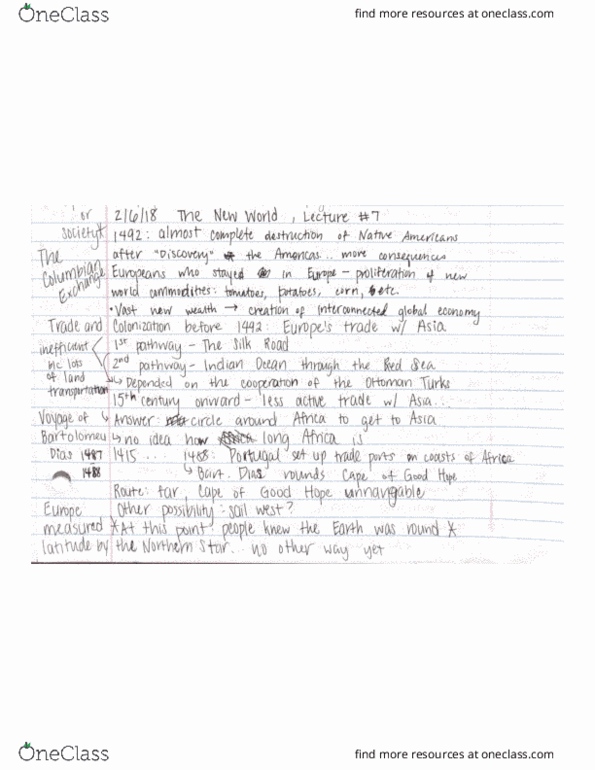 OneClass
find more resources at oneclass.com
or 2/6/18 The New World, Lecture #7
society* 1492: almost complete destruction of Native Americans
The after "Discovery" the Americas... more consequences
Columbian Europeans who stayed in Europe - proliteration of new
Exchange world commodities: tomatoes, potatoes, corn, etc.
• Vast new wealth → creation of interconnected global economy
Trade and Colonization before 1492: Europe's trade w/ Asia
inefficient 1st pathway - The Silk Road
b/c lots 2nd pathway - Indian Ocean through the Red Sea
of land ↳ Depended on the cooperation of the Ottoman Turks
transportation 15th century onward - less active trade w/ Asia...
Voyage of ↳ Answer: circle around Africa to get to Asia
Bartolomeu ↳ no idea how long Africa is
Dias 1487 1415 ... 1488: Portugal set up trade ports on coasts of Africa
1488 ↳ Bart. Dias rounds Cape of Good Hope
Route: far, Cape of Good Hope unnavigable
Europe Other possibility: sail west?
measured *At this point people knew the Earth was round *
latitude by the Northern Star... no other way yet
OneClass
find more resources at oneclass.com